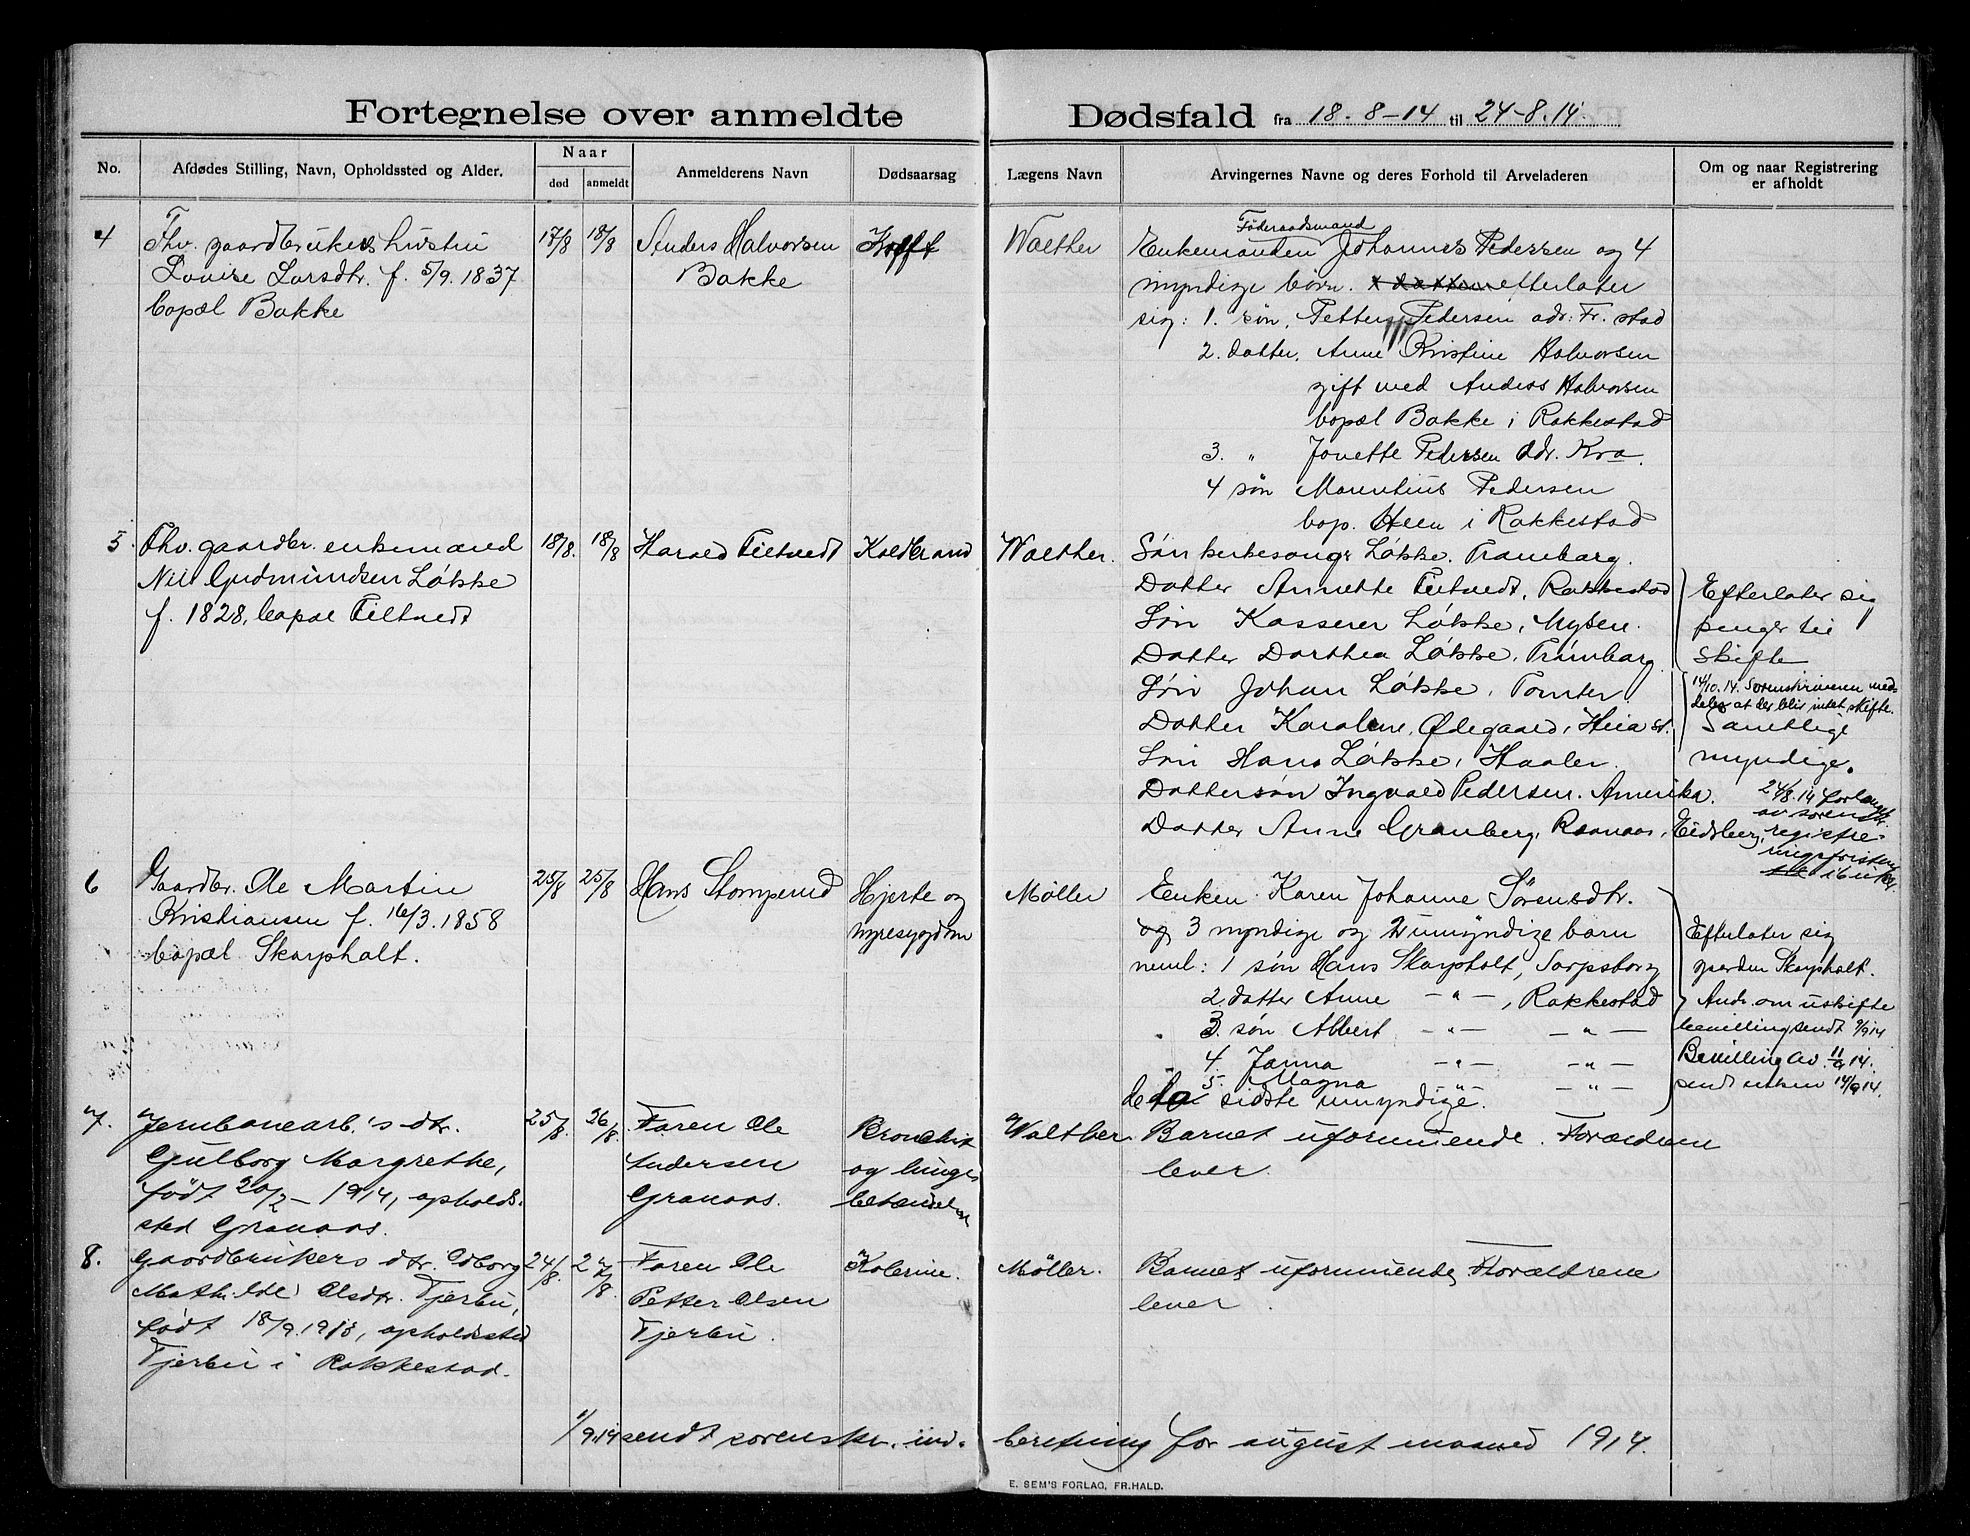 Fortegnelse over anmeldte Dødsfald fra 18.8-14 til 24-8.14.
No.
Afdødes Stilling, Navn, Opholdssted og Alder.
Naar
død
anmeldt
Anmelderens Navn
Dødsaarsag
Lægens Navn
Arvingernes Navne og deres Forhold til Arveladeren
Om og naar Registrering
er afholdt
4
Fhv. gaardbrukers hustru
Louise Larsdtr. f. 5/9. 1837
bopæl Bakke
17/8
18/8
Anders Halvorsen
Bakke
Kræft
Walther
Føderaadsmand
Enkemanden Johannes Pedersen og 4
myndige børn. efterlater
sig: 1. søn, Petter Pedersen adr: Fr. stad
2. datter, Anne Kristine Halvorsen
gift med Anders Halvorsen
bopæl Bakke i Rakkestad
3. " Jonette Pedersen adr. Kra.
4 søn Marentius Pedersen
bop. Heen i Rakkestad
5.
Fhv. gaardbr. enkemand
Nils Gudmundsen Løkke
f. 1828, bopæl Tiltvedt
18/8.
18/8
Harald Tiltvedt
Koldbrand
Walther.
Søn kirkesanger Løkke. Trømborg.
Datter Annette Tiltvedt, Rakkestad
Søn Kasserer Løkke, Mysen.
Datter Dorthea Løkke, Trømborg
Søn Johan Løkke, Tomter
Datter Karoline Ødegaard, Heia st.
Søn Hans Løkke, Haaler.
Dattersøn Ingvald Pedersen. Amerika.
Datter Anne Granberg, Raanaas, Eidsberg
Efterlater sig
penger til
skifte
14/10. 14. Sorenskriveren med-
deler at der blir intet skifte.
Samtlige
myndige.
24/8.14 forlænget
av sorenskr.
registre-
ringsfristen
i 6 uker.
6
Gaardbr. Ole Martin
Kristiansen f. 16/3. 1858
bopæl Skarpholt.
25/8
25/8
Hans Stomperud
Hjerte og
nyresygdom
Møller
Enken Karen Johanne Sørensdtr.
og 3 myndige og 2 umyndige barn
neml: 1 søn Hans Skarpholt, Sarpsborg
2. datter Anne — " —, Rakkestad
3. søn Albert — " — — " —
4. Janna — " — — " —
5. Magna — " — — " —
de to sidste umyndige.
Efterlater sig
gaarden Skarpholt.
Ands. om uskifte
bevilling sendt 9/9 14
Bevilling av 11/9 14.
sendt enken 14/9 14.
7.
Jernbanearb.'s dtr.
Gulborg Margrethe,
født 20/2 — 1914, opholds-
sted Granaas.
25/8.
26/8.
Faren Ole
Andersen
Granaas.
Bronchit
og lunge
betændelse
Walther.
Barnet uformuende. Forældrene
lever.
8.
Gaardbrukers dtr. Edborg
Mathilde Olsdtr. Tjerbu,
født 18/9. 1913, opholdssted
Tjerbu i Rakkestad.
24/8.
27/8
Faren Ole
Petter Olsen
Tjerbu.
Kolerine.
Møller.
Barnet uformuende, Forældrene
lever.
1/9.14 sendt sorenskr. ind-beretning for august maaned 1914.
E. SEM'S FORLAG, FR.HALD.